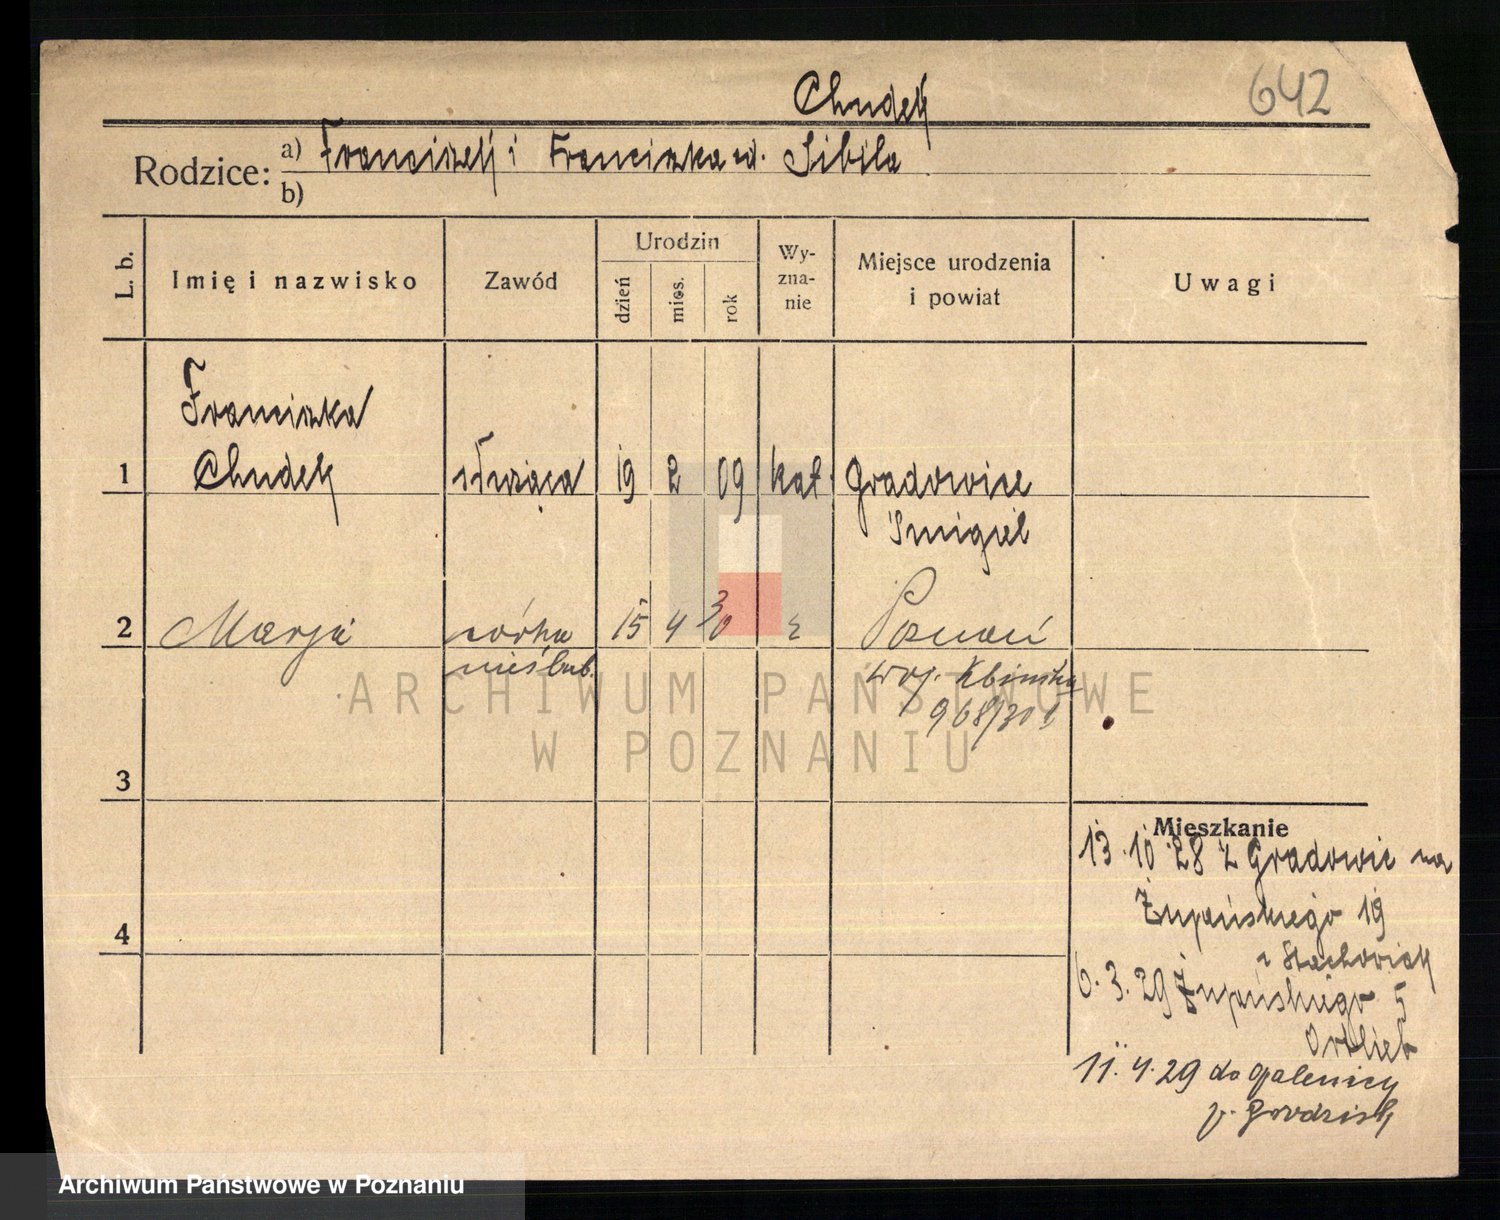 Chudek
642
Rodzice: a) Franciszek i Franciszka zd. Sibila
b)
L. b.
Imię i nazwisko
Zawód
Urodzin
dzień
mies.
rok
Wy-
zna-
nie
Miejsce urodzenia
i powiat
Uwagi
1
Franciszka
Chudek
służąca
19 2 09 kat. Gradowice
Śmigiel
2 Marja córka 15 4 30 Poznań
nieślub.
woj.
968/30
3
4
Mieszkanie
13.10.28 z Gradowic na
Żupańskiego 19
Stachowiak
6.3.29 Żupańskiego 5
Ortlieb
11.4.29 do
p. Grodzisk
ARCHIWUM PAŃSTWOWE
W POZNANIU
Archiwum Państwowe w Poznaniu